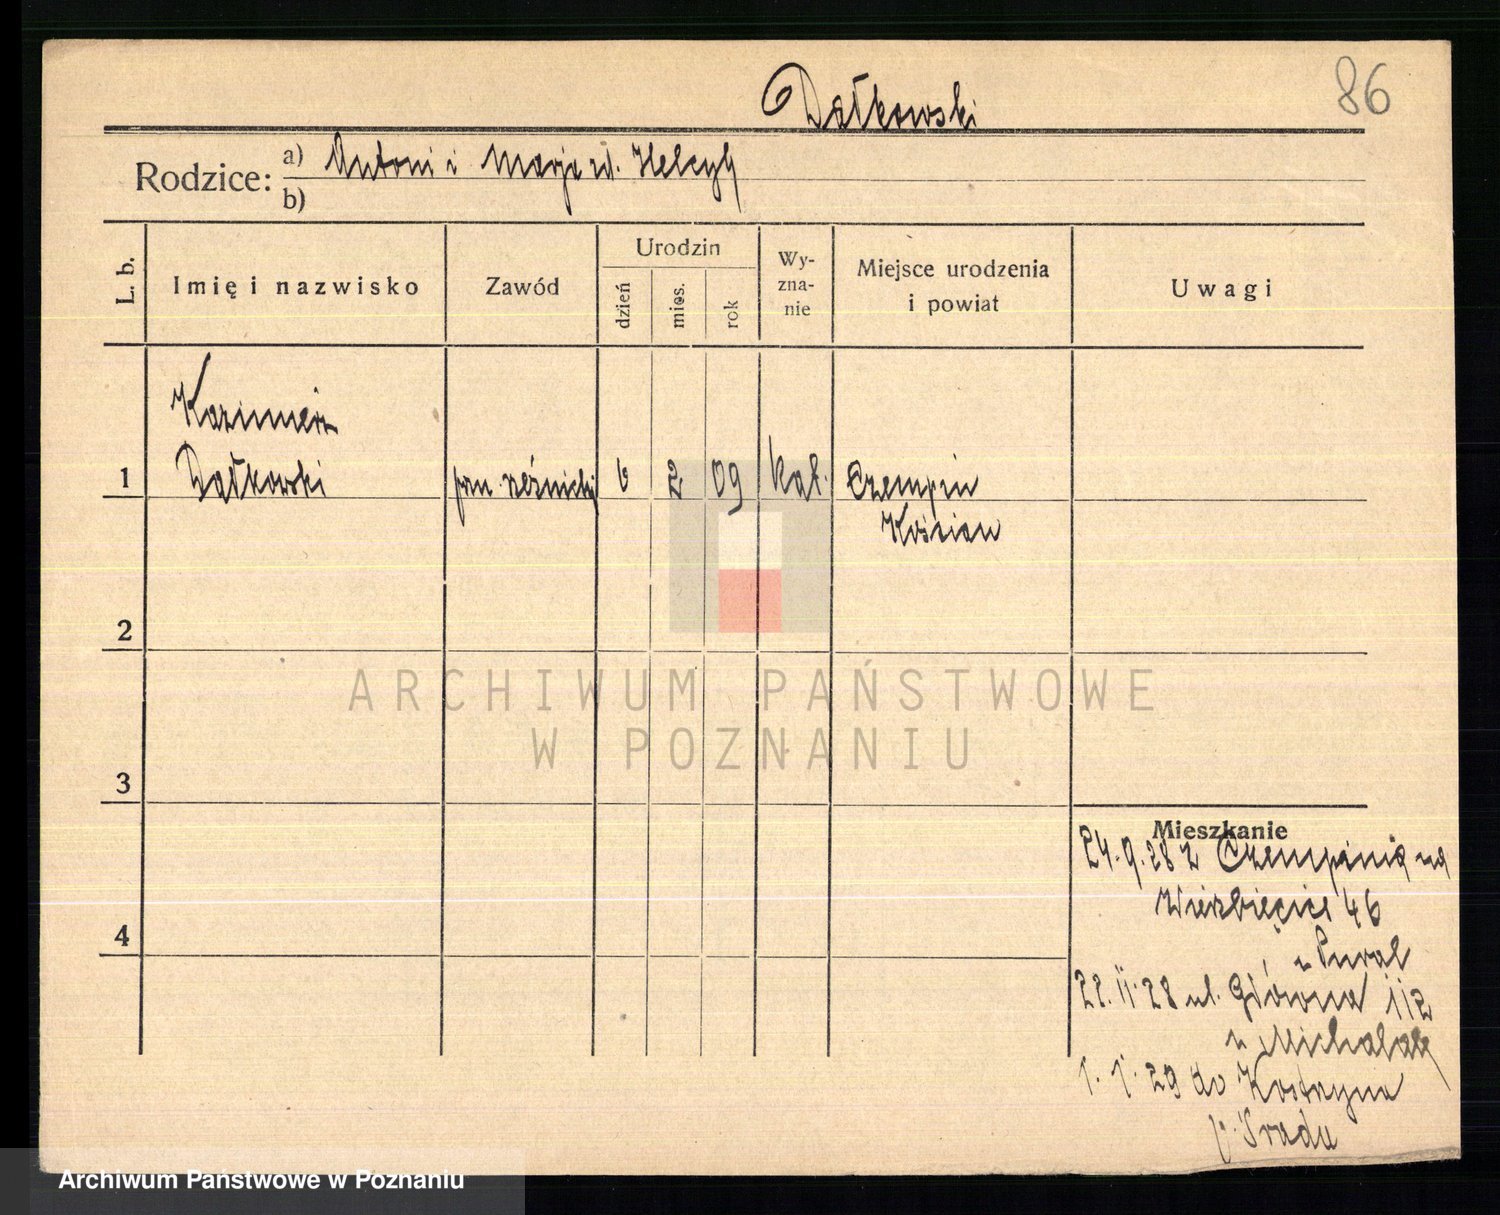 86
Dałkowski
Rodzice: a) Antoni i Marja zd. Helczyk
b)
L. b. Imię i nazwisko Zawód Urodzin dzień mies. rok Wyznanie Miejsce urodzenia i powiat Uwagi
Kazimierz
1 Dałkowski pom. rzeźnicki 6 2 09 kat. Czempin
Kościan
2
ARCHIWUM PAŃSTWOWE
W POZNANIU
3
Mieszkanie
24.9.28 z Czempinia na
Wierzbięcice 46
u
22.11.28 ul. Główna 112
u Michalak
1.1.29 do Kostrzyna
p. Środa
4
Archiwum Państwowe w Poznaniu